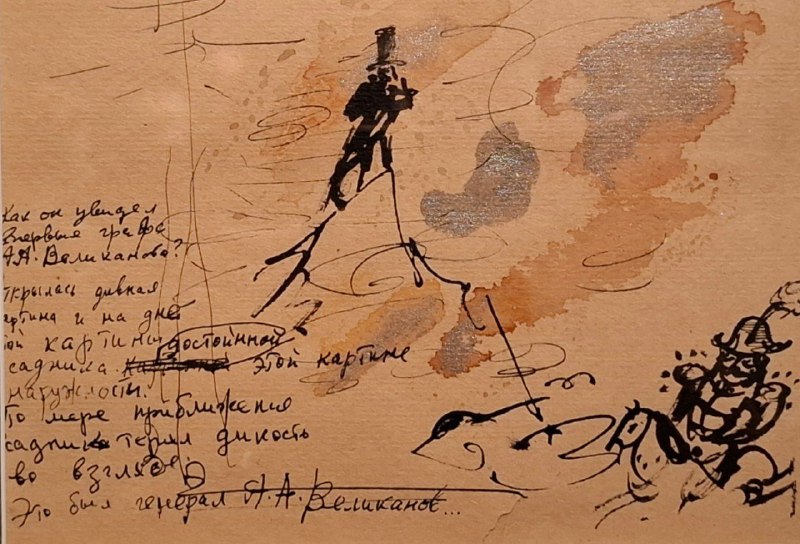 Как он увидел
впервые графа
А.А. Великанова?
ткрылась дивная
артина и на дне
ой картины достойной
садника. этой картине
наружности.
По мере приближения
садник терял дикость
во взгляде.
Это был генерал А.А. Великанов...